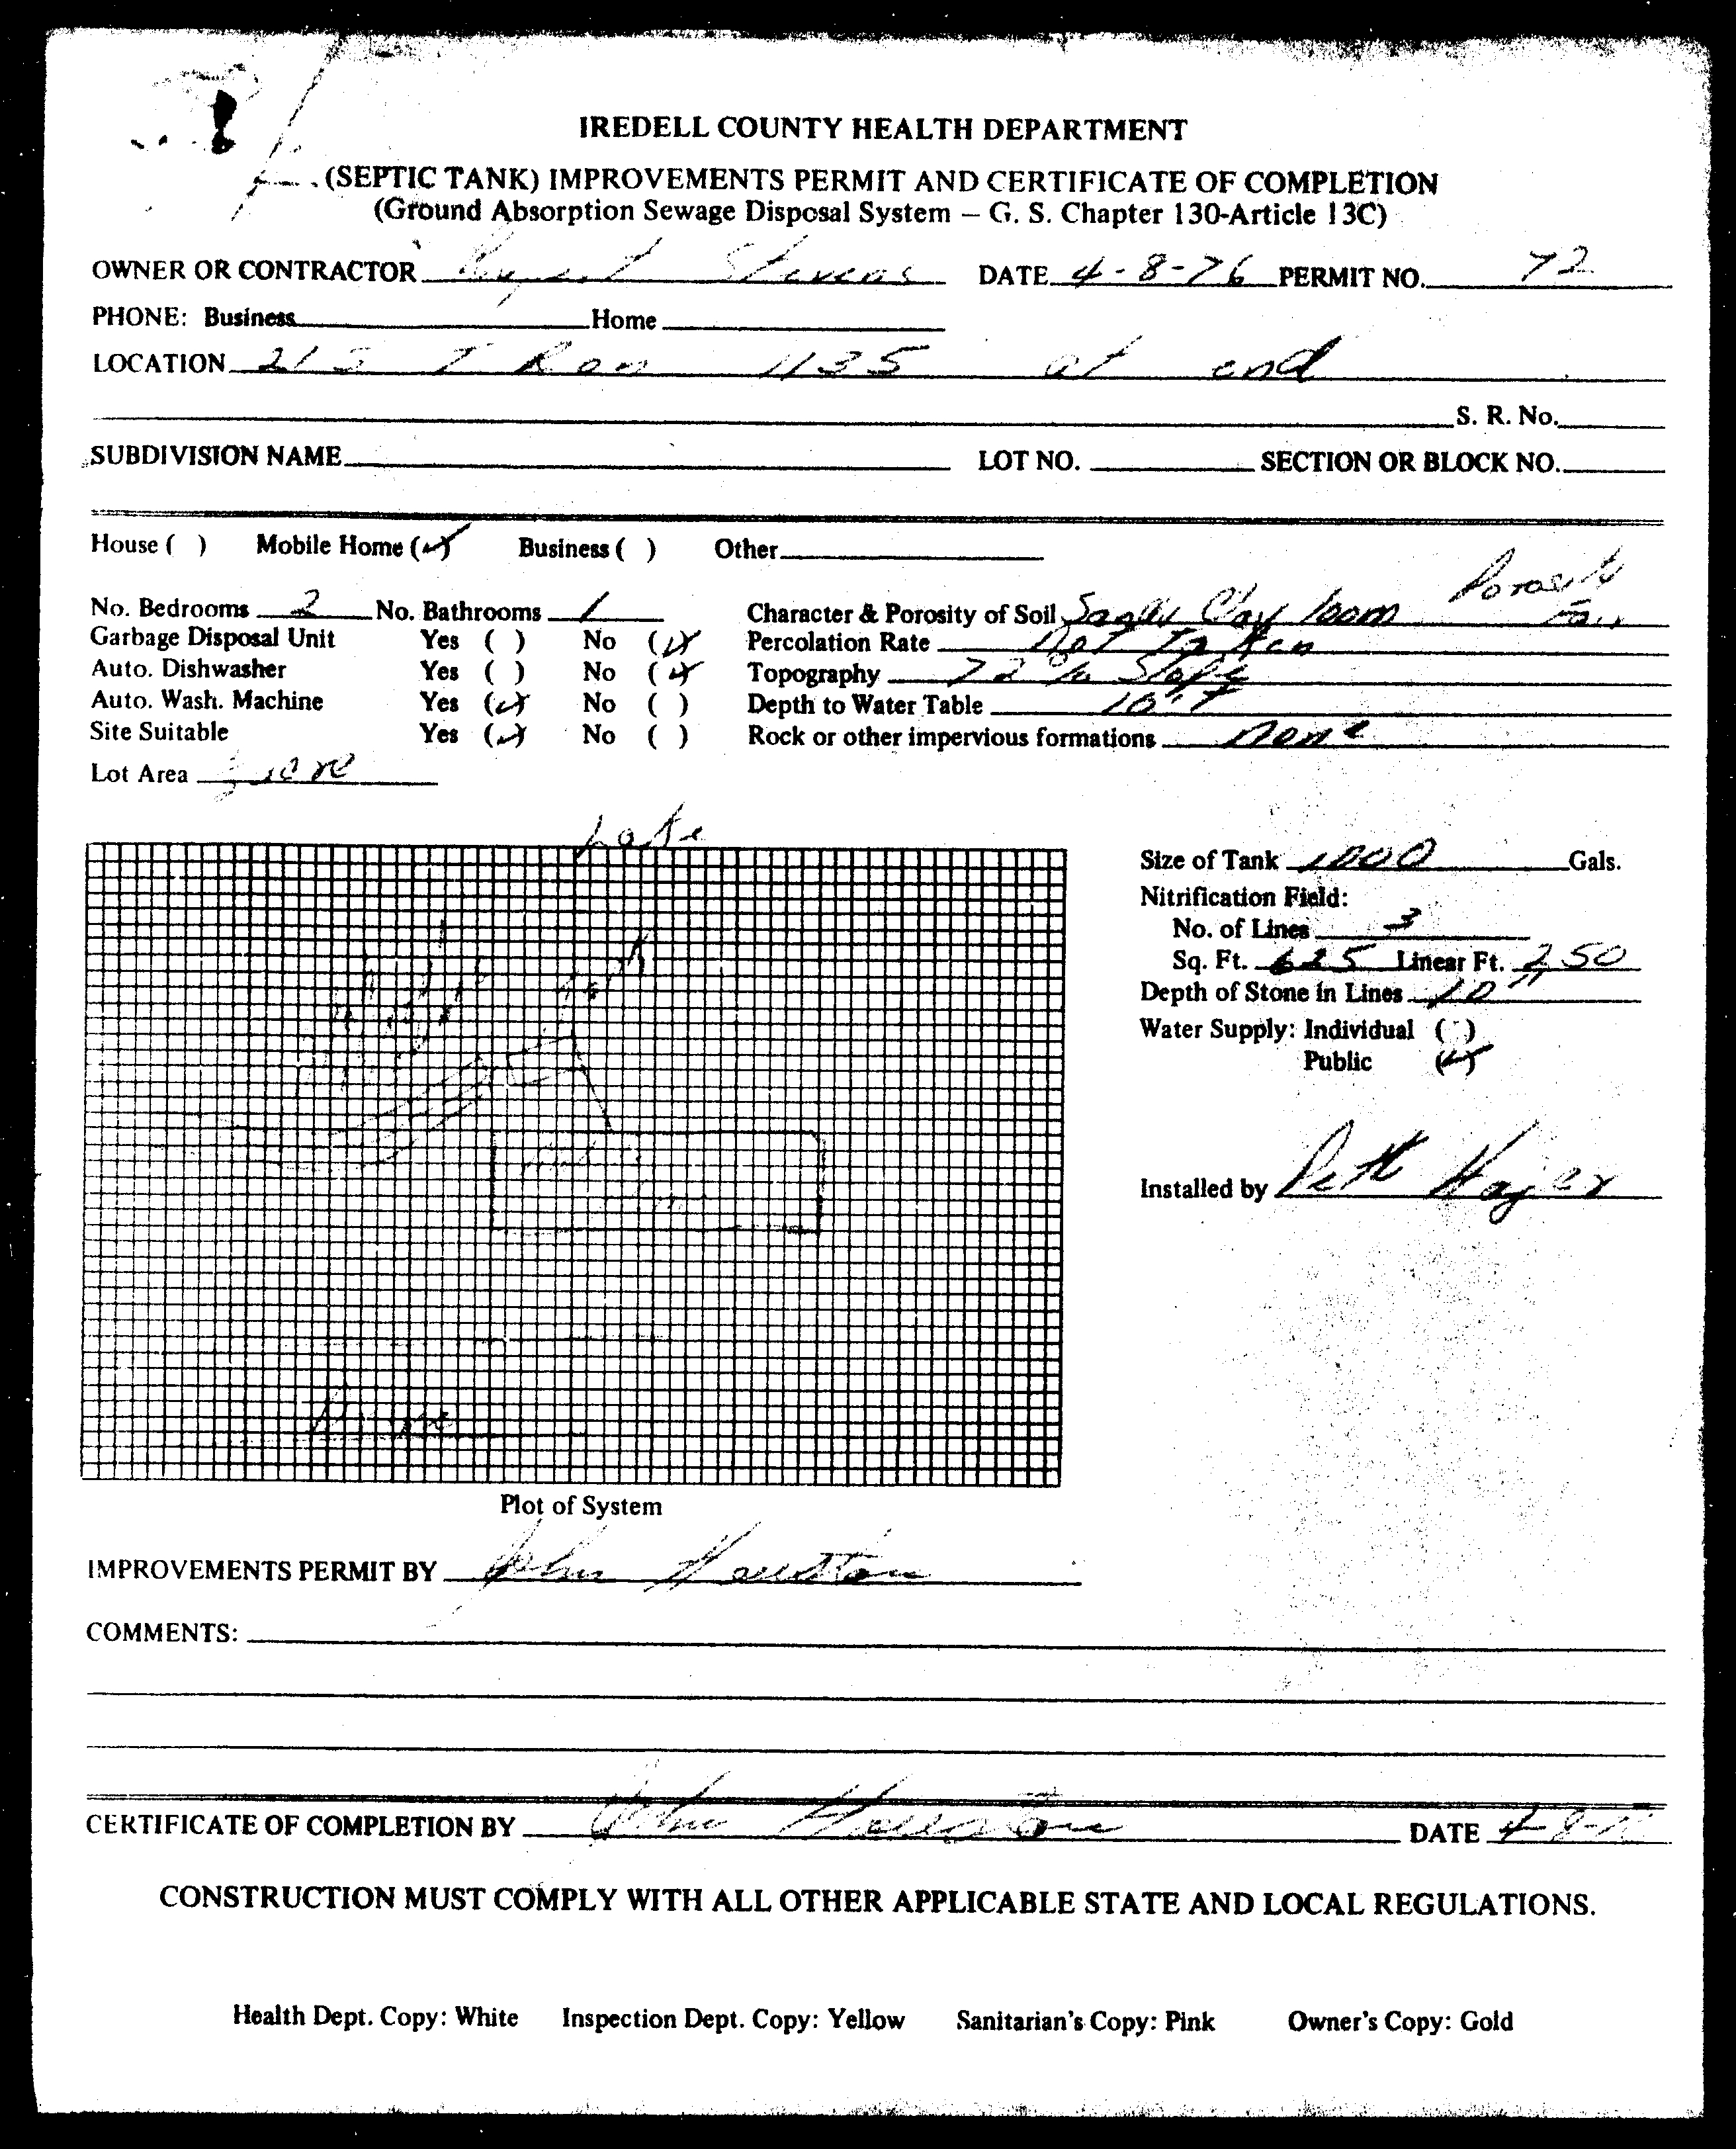 IREDELL COUNTY HEALTH DEPARTMENT
(SEPTIC TANK) IMPROVEMENTS PERMIT AND CERTIFICATE OF COMPLETION
(Ground Absorption Sewage Disposal System – G. S. Chapter 130-Article 13C)
OWNER OR CONTRACTOR Stevens DATE 4-8-76 PERMIT NO. 72
PHONE: Business Home
LOCATION 1135 at end
S. R. No.
SUBDIVISION NAME LOT NO. SECTION OR BLOCK NO.
House ( ) Mobile Home (✓) Business ( ) Other
No. Bedrooms 2 No. Bathrooms 1 Character & Porosity of Soil Sandy Clay loam Porosity Fair
Garbage Disposal Unit Yes ( ) No (✓) Percolation Rate Not Taken
Auto. Dishwasher Yes ( ) No (✓) Topography % Slope
Auto. Wash. Machine Yes (✓) No ( ) Depth to Water Table 10'+
Site Suitable Yes (✓) No ( ) Rock or other impervious formations none
Lot Area acre
Lake
Size of Tank 1000 Gals.
Nitrification Field:
No. of Lines 3
Sq. Ft. 625 Linear Ft. 250
Depth of Stone in Lines 10"
Water Supply: Individual ( )
Public (✓)
Installed by Hager
Plot of System
IMPROVEMENTS PERMIT BY John Houston
COMMENTS:
CERTIFICATE OF COMPLETION BY John Houston DATE 4-8-
CONSTRUCTION MUST COMPLY WITH ALL OTHER APPLICABLE STATE AND LOCAL REGULATIONS.
Health Dept. Copy: White Inspection Dept. Copy: Yellow Sanitarian's Copy: Pink Owner's Copy: Gold